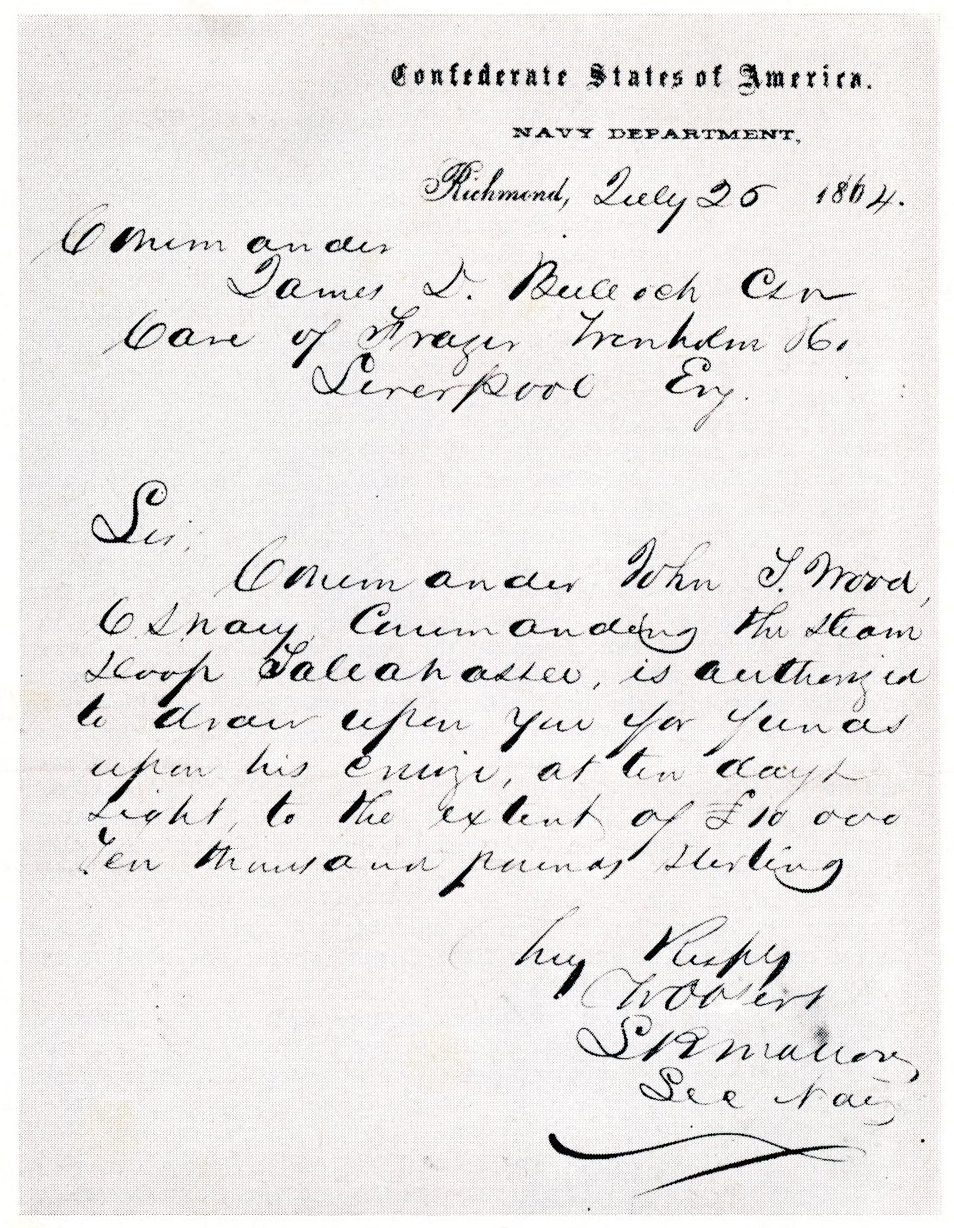 Confederate States of America.
NAVY DEPARTMENT,
Richmond, July 25 1864.
Commander
James D. Bulloch CSN
Care of Frazer Trenholm & Co.
Liverpool Eng.
Sir;
Commander John T. Wood,
CSNavy, Commanding the steam
sloop Tallahassee, is authorized
to draw upon you for funds
upon his cruize, at ten days
sight, to the extent of £10 000
Ten thousand pounds sterling
Very Respy
Yr Ob Servt
S R Mallory
Sec Navy